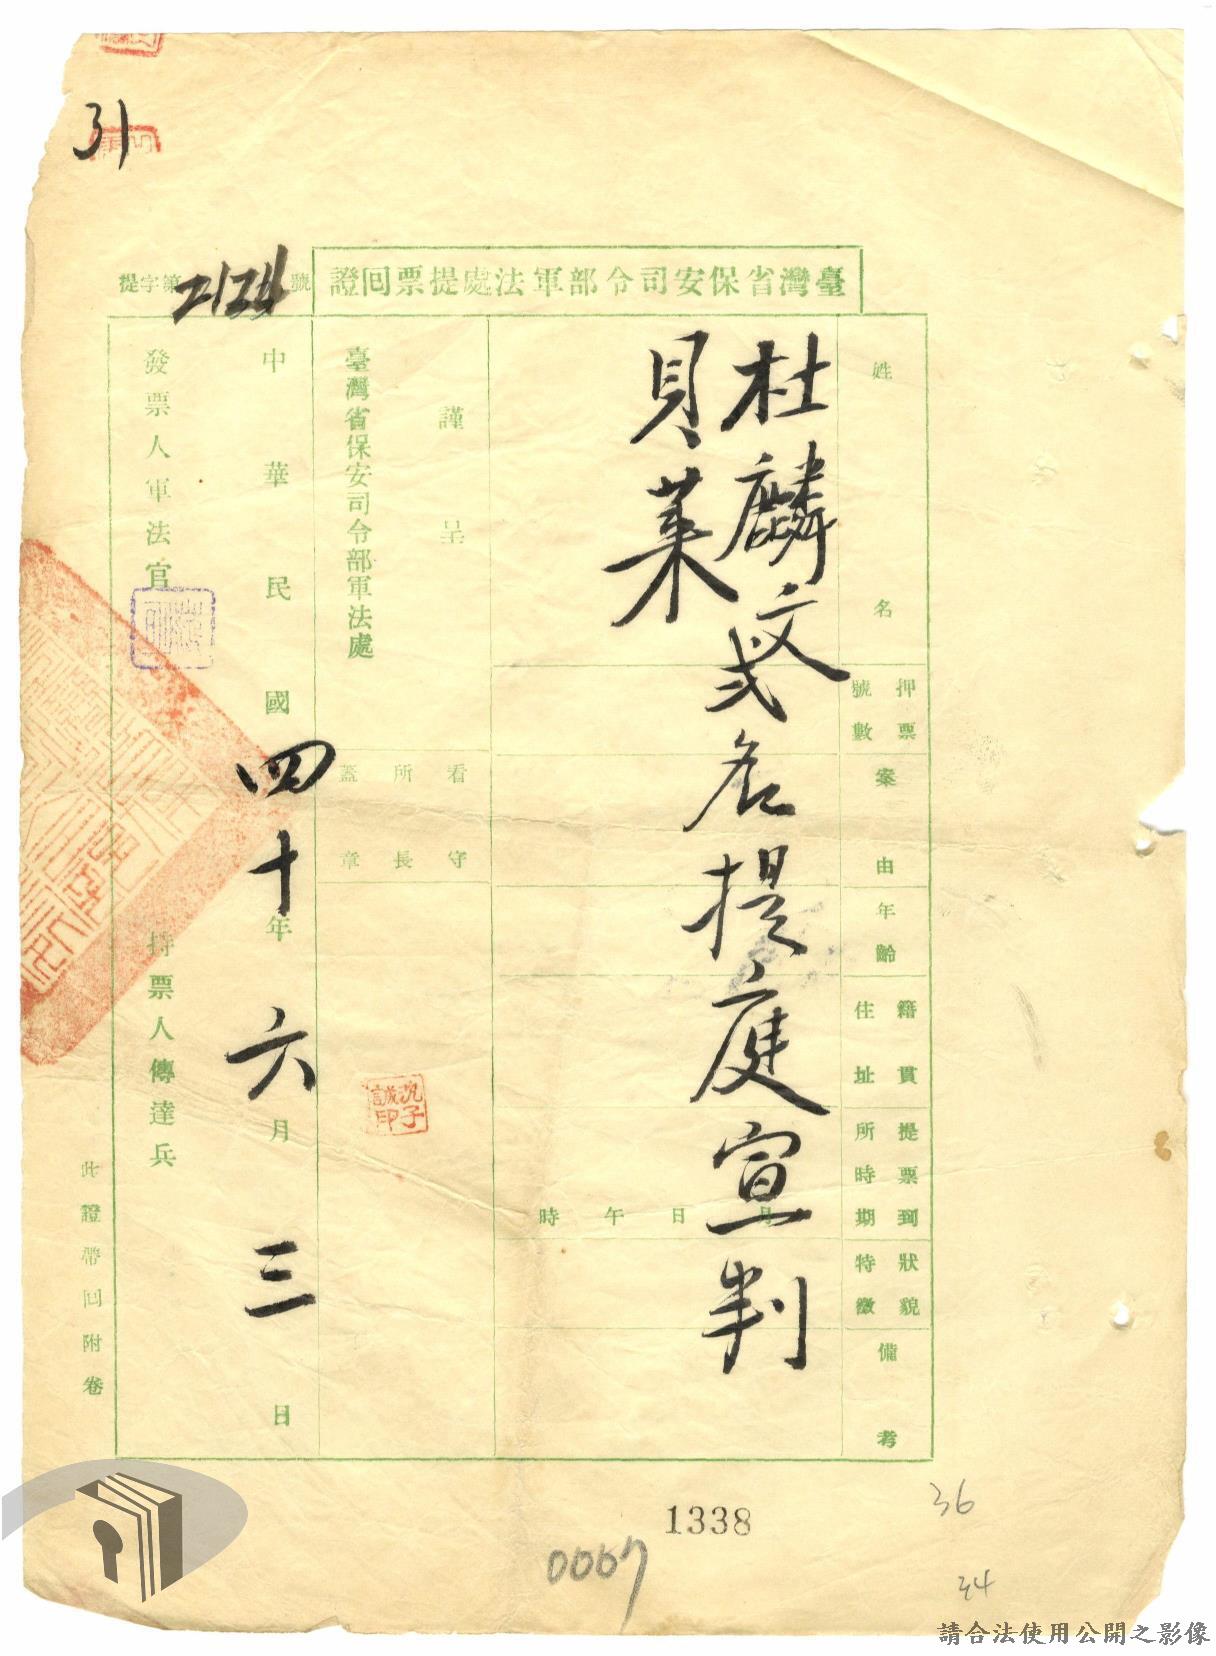 31
臺灣省保安司令部軍法處提票回證
提字第2124號
姓名
押票號數
案由
年齡
籍貫住址
提票到所時期
狀貌特徵
備考
杜麟文
貝萊
弍名提庭宣判
月日午時
謹呈
臺灣省保安司令部軍法處
看守所長蓋章
沈子誠印
中華民國四十年六月三日
發票人軍法官
持票人傳達兵
此證帶回附卷
1338
0067
36
34
請合法使用公開之影像